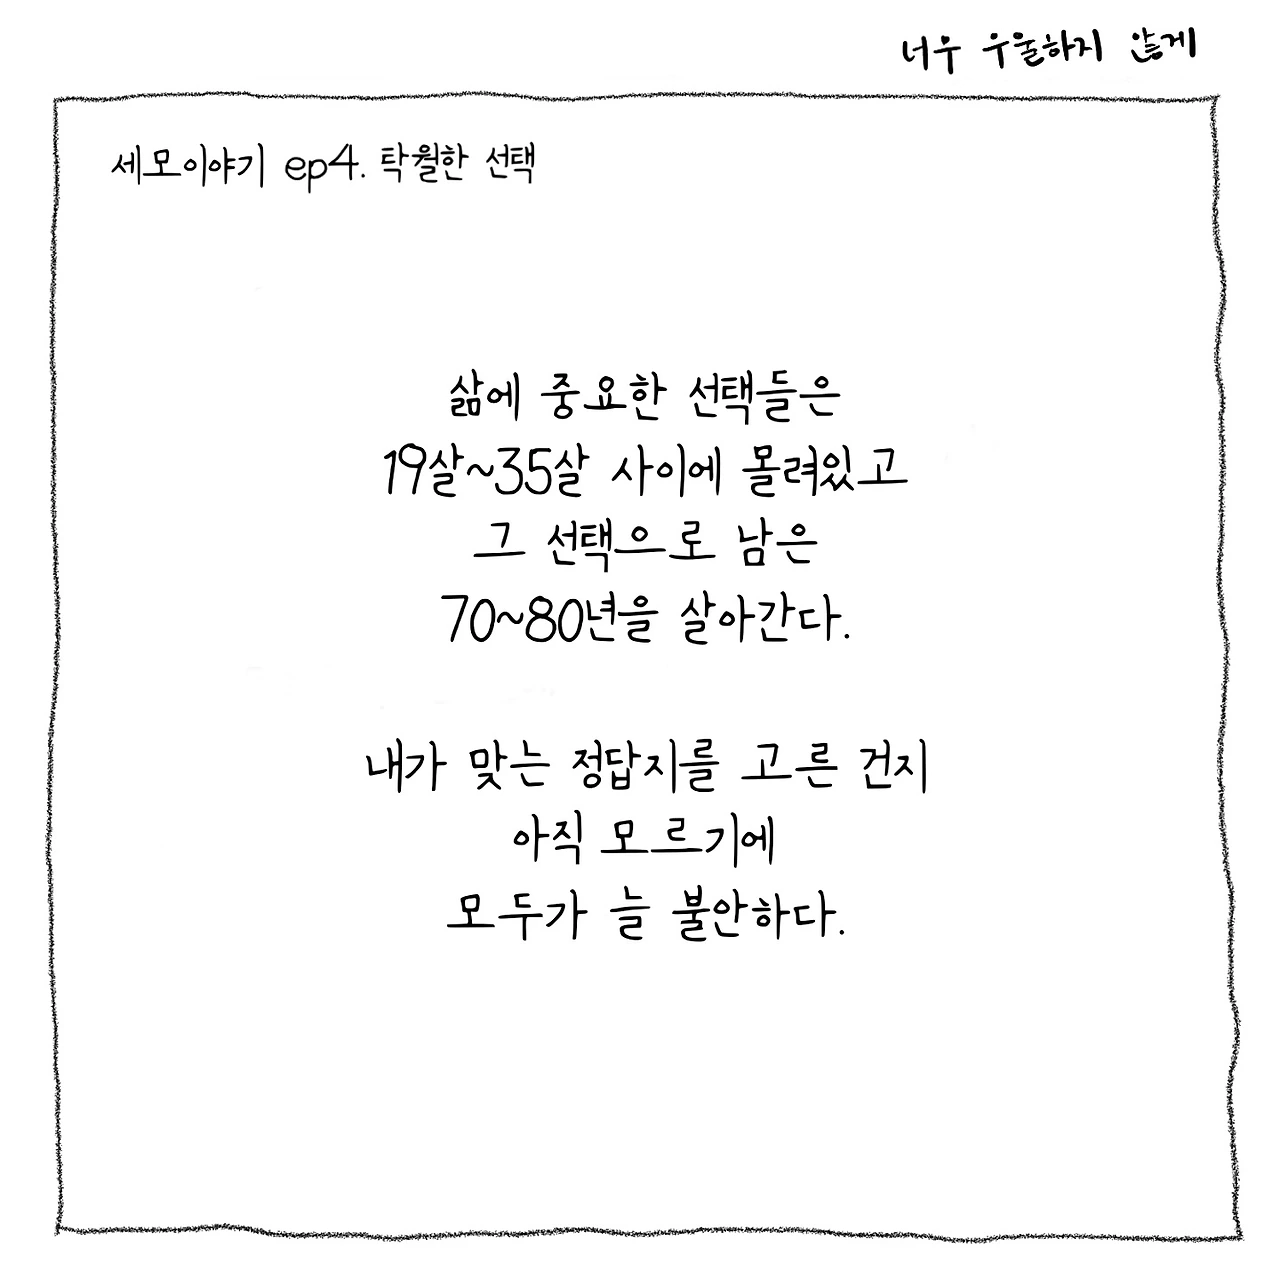 너우 우울하지 않게
세모이야기 ep4. 탁월한 선택
삶에 중요한 선택들은
19살~35살 사이에 몰려있고
그 선택으로 남은
70~80년을 살아간다.
내가 맞는 정답지를 고른 건지
아직 모르기에
모두가 늘 불안하다.